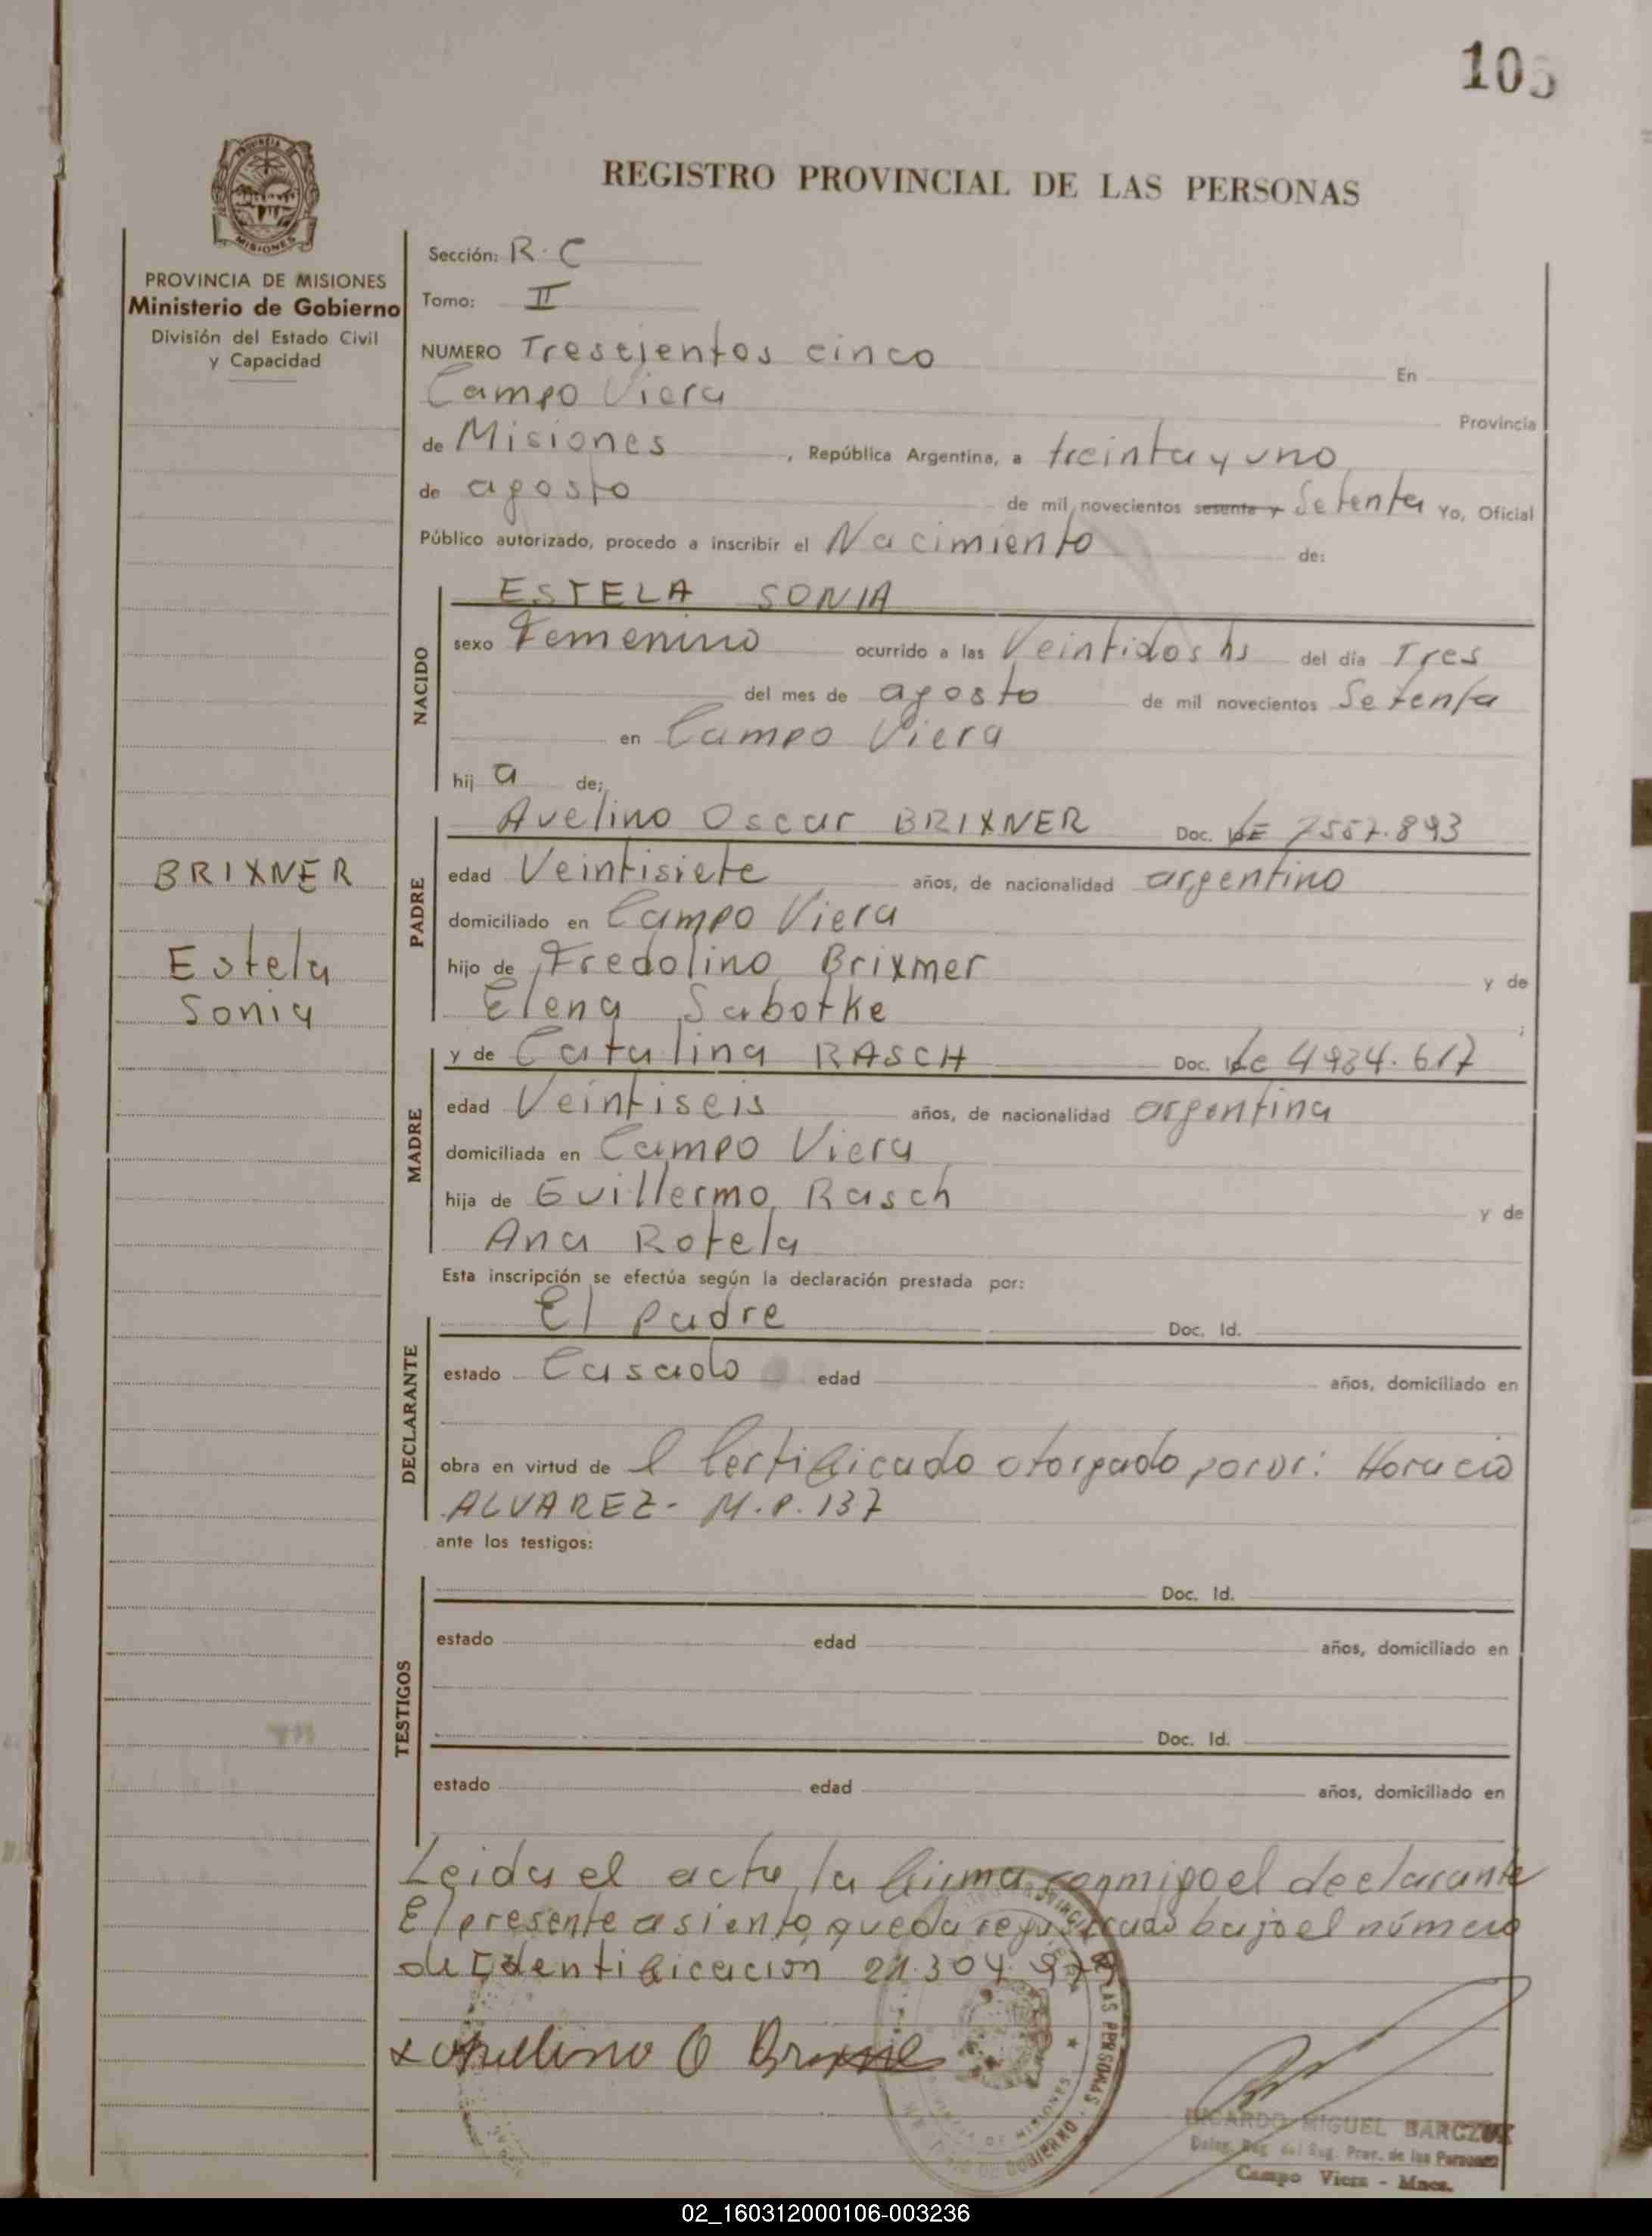 105
REGISTRO PROVINCIAL DE LAS PERSONAS
PROVINCIA DE MISIONES
Ministerio de Gobierno
División del Estado Civil
y Capacidad
Sección: R. C
Tomo: II
NUMERO Trescientos cinco En
Campo Viera Provincia
de Misiones, República Argentina, a treinta y uno
de agosto de mil novecientos sesenta y Setenta Yo, Oficial
Público autorizado, procedo a inscribir el Nacimiento de:
NACIDO
ESTELA SONIA
sexo Femenino ocurrido a las Veintidos hs del día Tres
del mes de agosto de mil novecientos Setenta
en Campo Viera
hij a de;
PADRE
Avelino Oscar BRIXNER Doc. 7557.893
edad Veintisiete años, de nacionalidad argentino
domiciliado en Campo Viera
hijo de Fredolino Brixmer y de
Elena Sabotke ;
BRIXNER
Estela
Sonia
MADRE
y de Catalina RASCH Doc. 4934.617
edad Veintiseis años, de nacionalidad argentina
domiciliada en Campo Viera
hija de Guillermo Rasch y de
Ana Rotela
Esta inscripción se efectúa según la declaración prestada por:
DECLARANTE
El padre Doc. Id.
estado Casado edad años, domiciliado en
obra en virtud de l Certificado otorgado por Dr: Horacio
ALVAREZ- M.P. 137
ante los testigos:
TESTIGOS
Doc. Id.
estado edad años, domiciliado en
Doc. Id.
estado edad años, domiciliado en
Leida el acta, la firma conmigo el declarante
El presente asiento queda registrado bajo el número
de Identificación 21.304.
Avelino O Brixne
RICARDO MIGUEL BARCZUK
Deleg. Reg. del Reg. Prov. de las Personas
Campo Viera - Mnes.
02_160312000106-003236